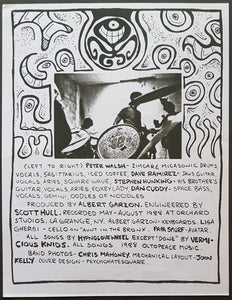 (LEFT TO RIGHT) PETER WALSH - ZIMGAR & MICASONIC DRUMS,
VOCALS, SAGITTARIUS, ICED COFFEE, DAVE RAMIREZ - GUITAR,
VOCALS, ARIES, SQUARE WAVE, STEPHEN HUNKING - HIS BROTHER'S
GUITAR, VOCALS, ARIES, FOXEY LADY, DAN CUDDY - SPACE BASS,
VOCALS, GEMINI, OODLES OF NOODLES
PRODUCED BY ALBERT GARZON, ENGINEERED BY
SCOTT HULL, RECORDED MAY - AUGUST 1988 AT ORCHARD
STUDIOS, LAGRANGE, NY, ALBERT GARZON - KEYBOARDS, LISA
GHERSI - CELLO ON "AUNT IN THE BRONX",
ALL SONGS BY HYPNOLOVEWHEEL EXCEPT "DONE" BY VERMI-
CIOUS KNIDS, ALL SONGS 1988
BAND PHOTOS - CHRIS MAHONEY, MECHANICAL LAYOUT - JOHN
KELLY, COVER DESIGN - PSYCHOSATSQUATCH.